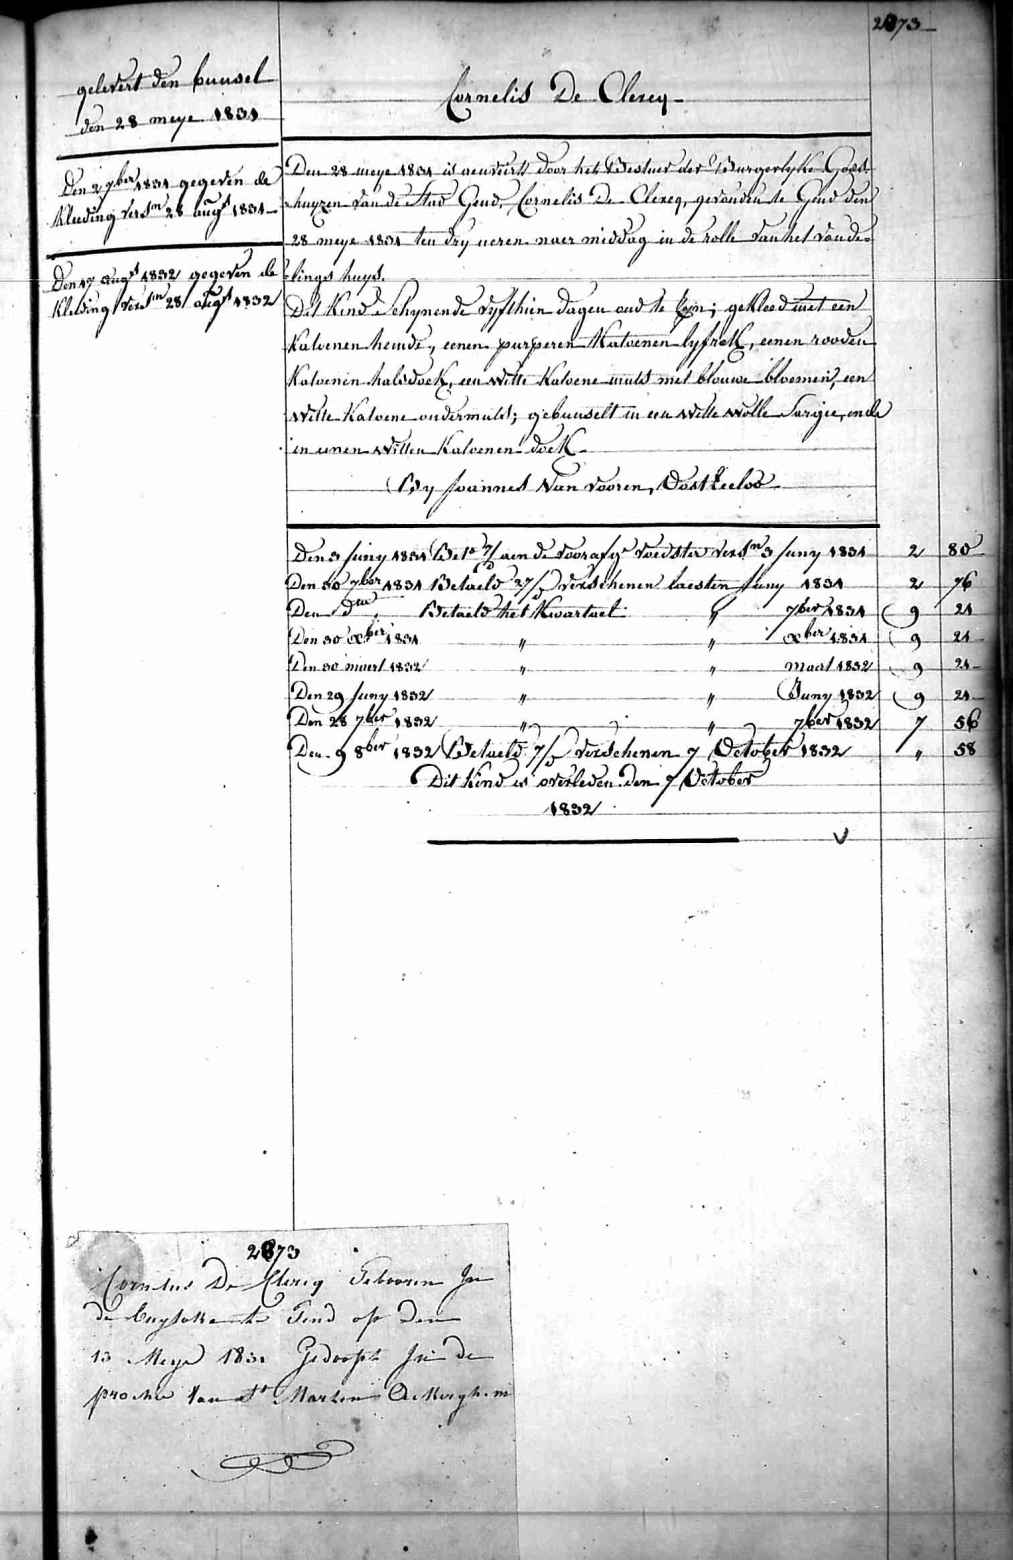 2873
gelevert den bunsel
den 28 meye 1831
Den 2 7ber 1831 gegeven de
kleeding versn 28 augt 1831
Den 17 augt 1832 gegeven de
kleeding versn 28 augt 1832
Cornelis De Clercq
Den 28 meye 1831 is aenveirt door het Bestuer der Burgerlyke Gods-
huyzen van de Stad Gend, Cornelis De Clercq, gevonden te Gend den
28 meye 1831 ten dry ueren naer middag in de rolle van het vonde-
lings huys.
Dit kind schynende vyfthien dagen oud te zyn; gekleed met een
katoenen hemde, eenen purperen katoenen lyfrok, eenen rooden
katoenen halsdoek, een witte katoene muts met blouwe bloemen, een
witte katoene ondermuts; gebunselt in een witte wolle sargie, ende
in eenen witten katoenen doek
By Joannes Van Vooren, Oosteeloo
Den 3 Juny 1831 Bete 7/ aen de voorafge voedster versn 3 Juny 1831 2 80
Den 30 7ber 1831 Betaeld 27/ verschenen laesten Juny 1831 2 76
Den do Betaeld het kwartael " 7ber 1831 9 24
Den 30 xber 1831 " " xber 1831 9 24
Den 30 maert 1832 " " maert 1832 9 24
Den 29 Juny 1832 " " Juny 1832 9 24
Den 28 7ber 1832 " " 7ber 1832 7 56
Den 9 8ber 1832 Betaeld 7/ verschenen 7 October 1832 " 58
Dit kind is overleden den 7 October
1832
2873
Cornelus De Clercq Gebooren In
de te Gend op den
13 Meye 1831 Gedoopt In de
prochie Van St Marten Ackerghem